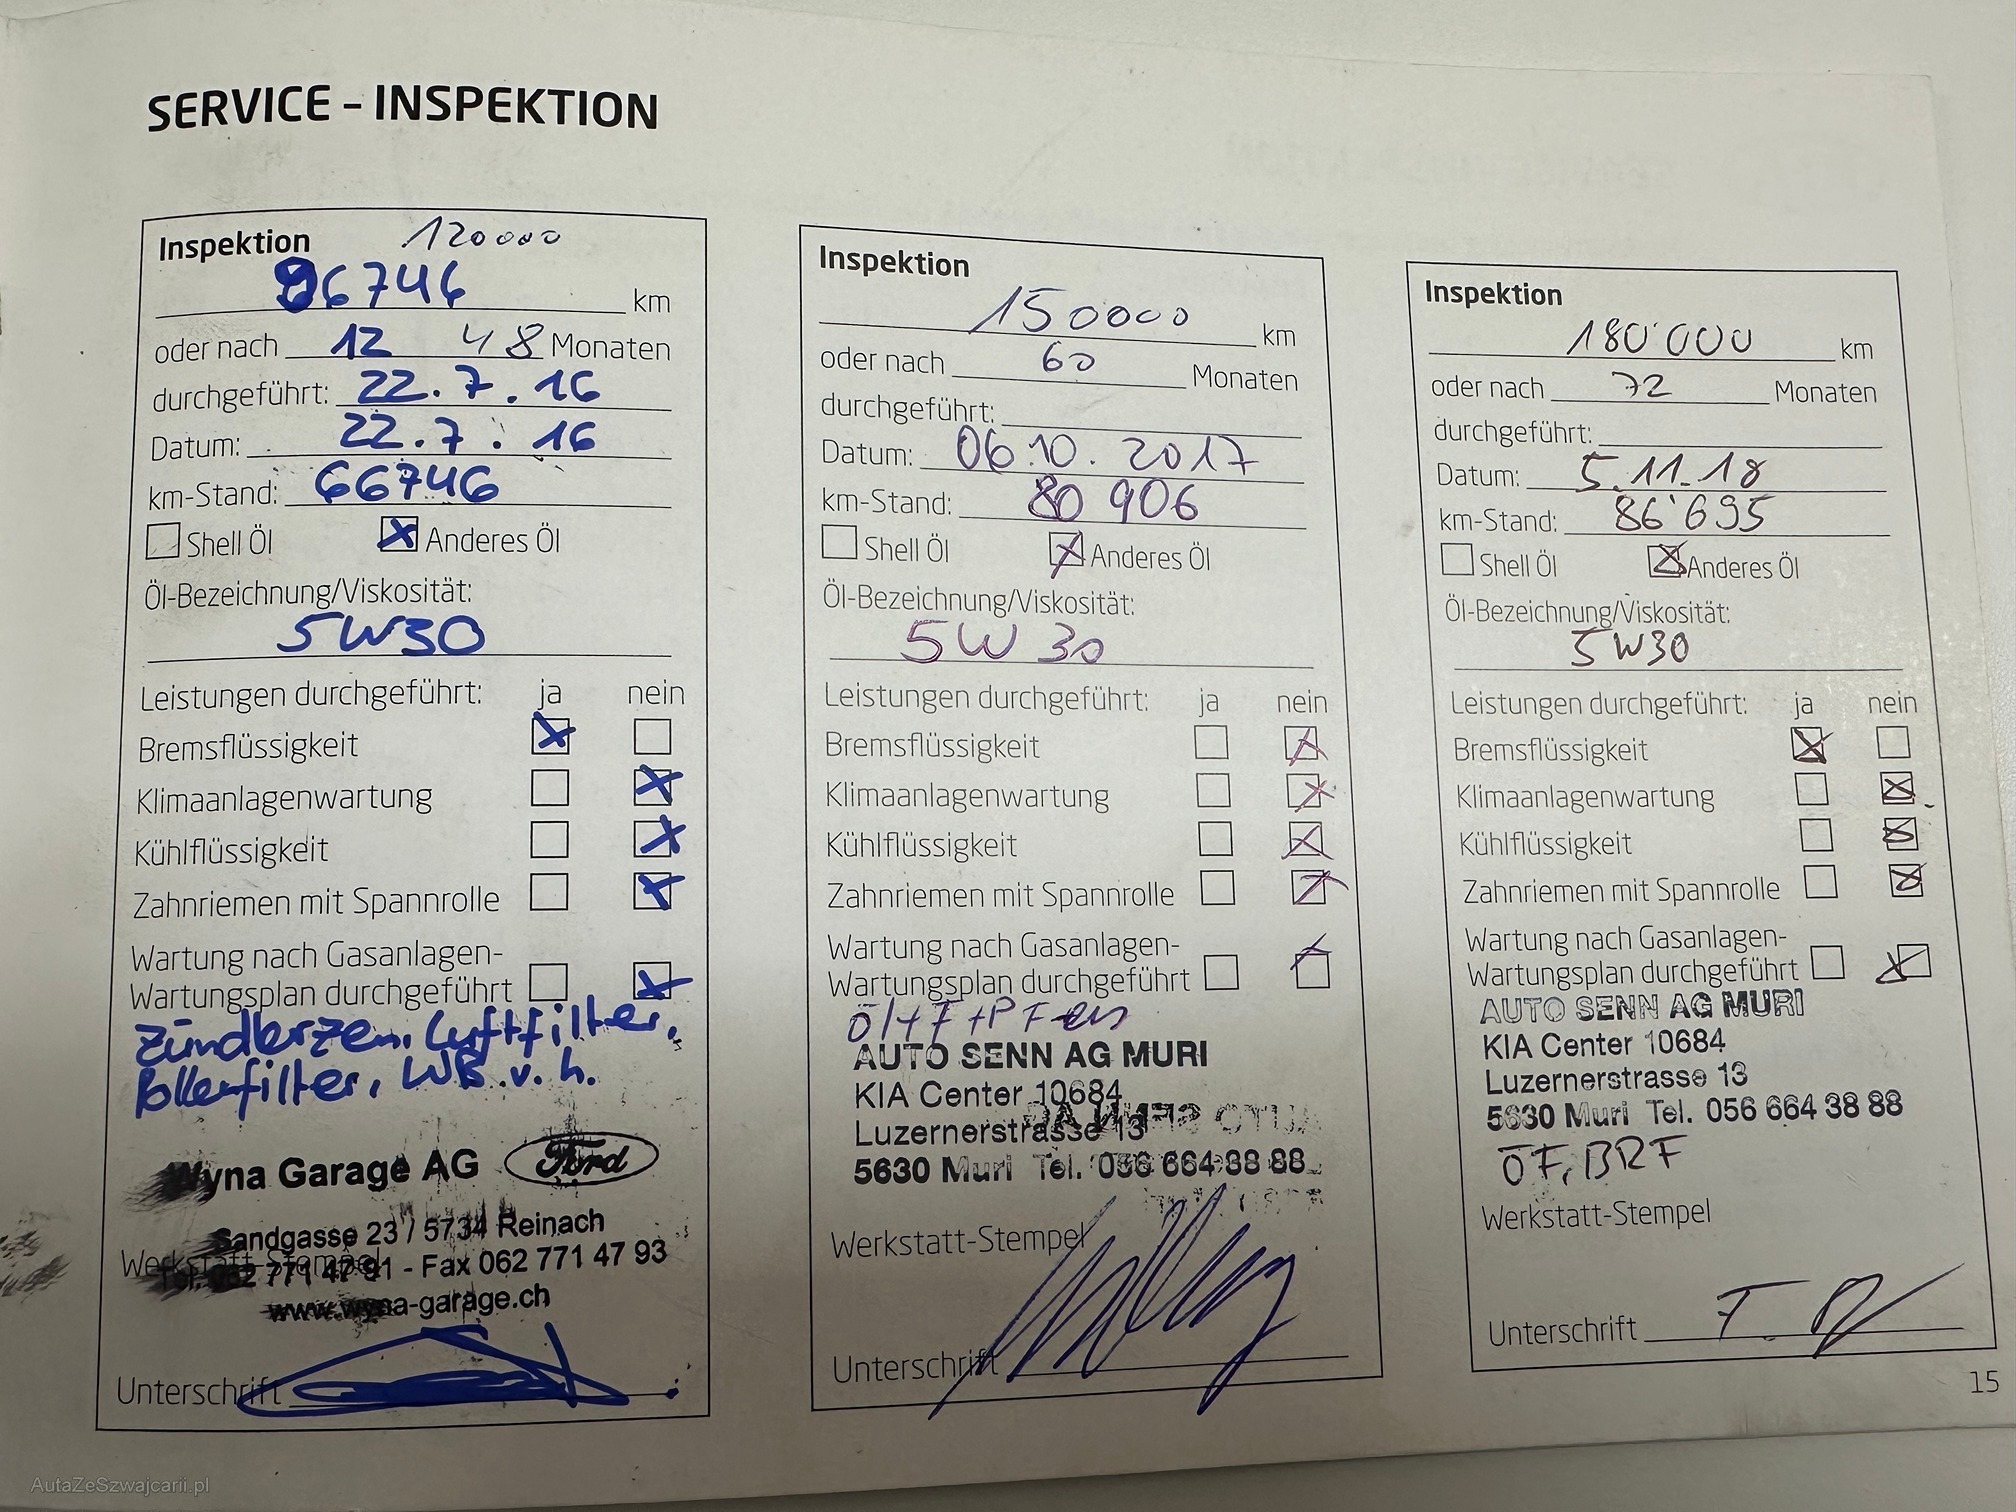 SERVICE - INSPEKTION
Inspektion 120000
96746 km
oder nach 12 48 Monaten
durchgeführt: 22.7.16
Datum: 22.7.16
km-Stand: 66746
Shell Öl Anderes Öl
Öl-Bezeichnung/Viskosität:
5W30
Leistungen durchgeführt: ja nein
Bremsflüssigkeit
Klimaanlagenwartung
Kühlflüssigkeit
Zahnriemen mit Spannrolle
Wartung nach Gasanlagen-
Wartungsplan durchgeführt
Zündkerzen, Luftfilter,
Pollenfilter, WB v. h.
Wyna Garage AG Ford
Sandgasse 23 / 5734 Reinach
Werkstatt-Stempel
Tel. 062 771 47 91 - Fax 062 771 47 93
www.wyna-garage.ch
Unterschrift
Inspektion
150000 km
oder nach 60 Monaten
durchgeführt:
Datum: 06.10.2017
km-Stand: 80 906
Shell Öl Anderes Öl
Öl-Bezeichnung/Viskosität:
5W 30
Leistungen durchgeführt: ja nein
Bremsflüssigkeit
Klimaanlagenwartung
Kühlflüssigkeit
Zahnriemen mit Spannrolle
Wartung nach Gasanlagen-
Wartungsplan durchgeführt
Öl+F+PF
AUTO SENN AG MURI
KIA Center 10684
Luzernerstrasse 13
5630 Muri Tel. 056 664 38 88
Werkstatt-Stempel
Unterschrift
Inspektion
180'000 km
oder nach 72 Monaten
durchgeführt:
Datum: 5.11.18
km-Stand: 86'695
Shell Öl Anderes Öl
Öl-Bezeichnung/Viskosität:
5W30
Leistungen durchgeführt: ja nein
Bremsflüssigkeit
Klimaanlagenwartung
Kühlflüssigkeit
Zahnriemen mit Spannrolle
Wartung nach Gasanlagen-
Wartungsplan durchgeführt
AUTO SENN AG MURI
KIA Center 10684
Luzernerstrasse 13
5630 Muri Tel. 056 664 38 88
ÖF, BRF
Werkstatt-Stempel
Unterschrift
15
AutaZeSzwajcarii.pl